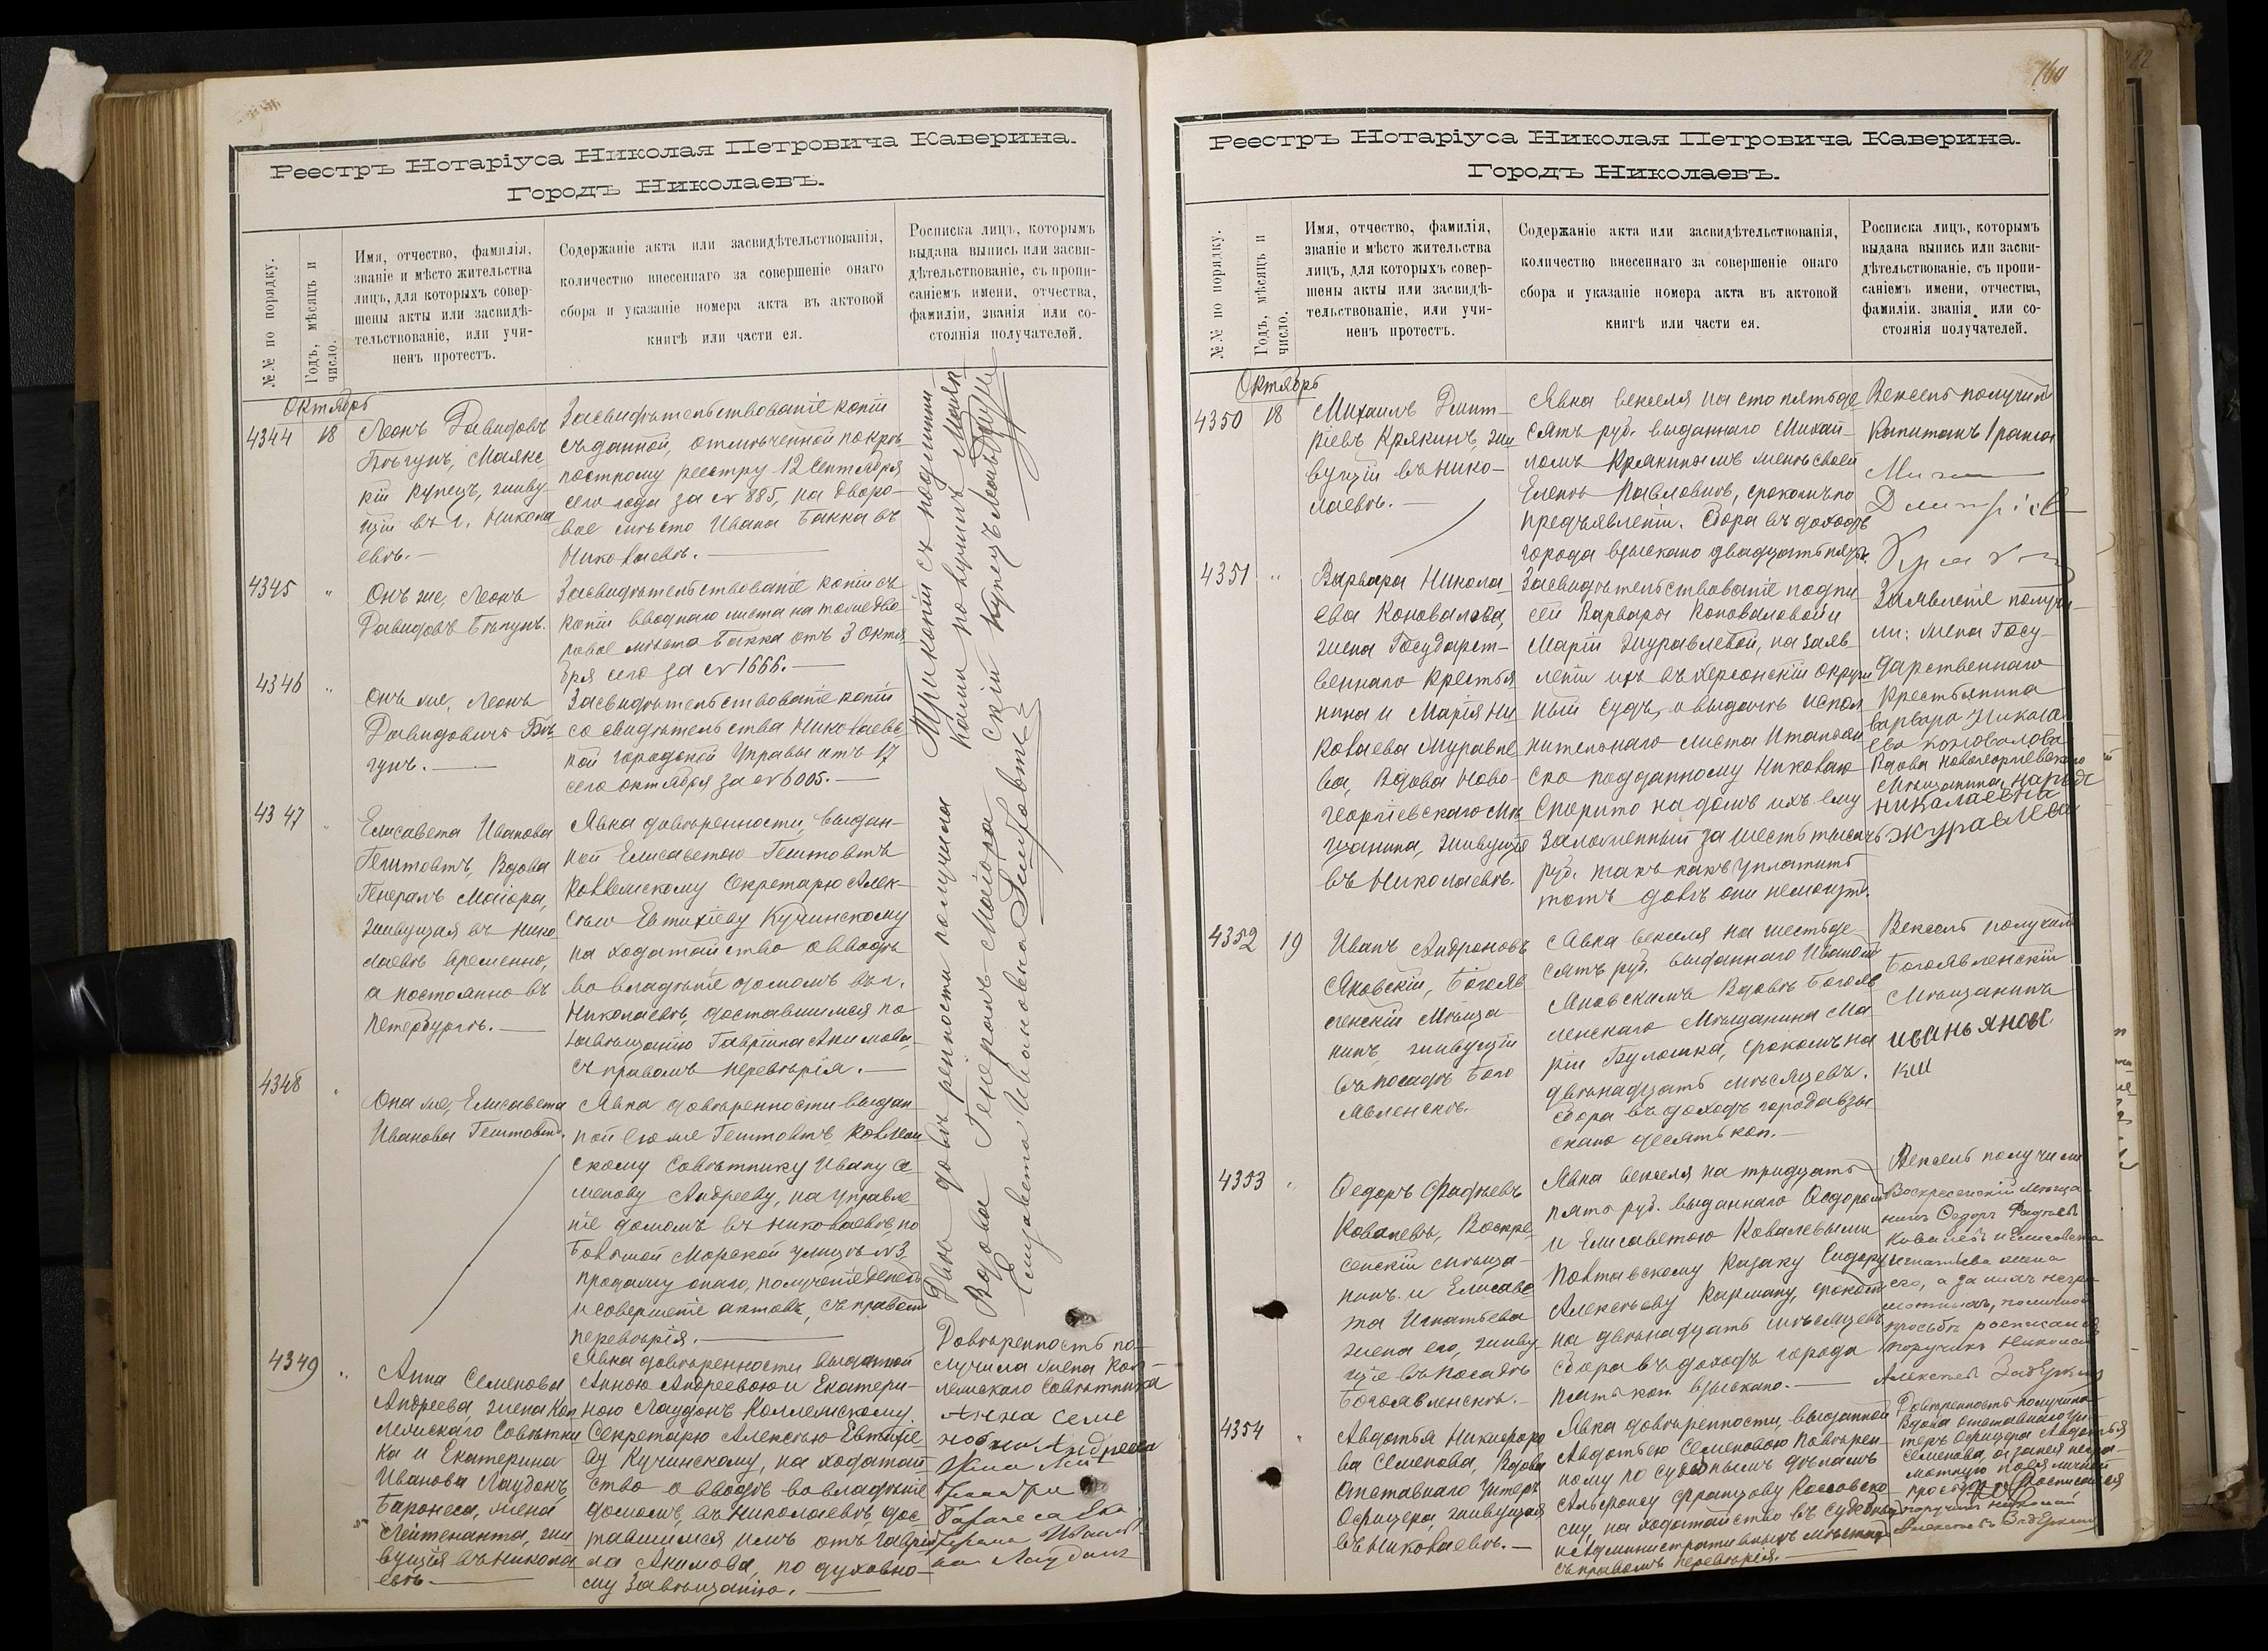 Реестръ Нотаріуса Николая Петровича Каверина.
Городъ Николаевъ.
№№ по порядку.
Годъ, мѣсяцъ и
число.
Имя, отчество, фамилія,
званіе и мѣсто жительства
лицъ, для которыхъ совер-
шены акты или засвидѣ-
тельствованіе, или учи-
ненъ протестъ.
Содержаніе акта или засвидѣтельствованія,
количество внесеннаго за совершеніе онаго
сбора и указаніе номера акта въ актовой
книгѣ или части ея.
Росписка лицъ, которымъ
выдана выпись или засви-
дѣтельствованіе, съ пропи-
саніемъ имени, отчества,
фамиліи, званія или со-
стоянія получателей.
Октябрь
4344
18
Леонъ Давидовъ
Бѣгунъ, Маякс
кій Купецъ, живу
щій въ г. Никола
евѣ.—
Засвидѣтельствованіе копіи
съ данной, отмѣченной по крѣ
постному реестру 12 Сентября
сего года за № 885, на дворо-
вое мѣсто Ивана Бакка въ
Николаевѣ.—
4345
"
Онъ же, Леонъ
Давидовъ Бѣгунъ.
Засвидѣтельствованіе копіи съ
копіи вводнаго листа на тоже дво
ровое мѣсто Бакка отъ 3 Октя
бря сего за № 1666.—
4346
"
Онъ же, Леонъ
Давидовичъ Бѣ
гунъ.—
Засвидѣтельствованіе копіи
со свидѣтельства Николаевс
кой городской Управы отъ 17
сего октября за № 6005.—
Три копіи съ подлинни
ками получилъ Маяк
скій Купецъ Леонъ Бѣгунъ
4347
"
Елисавета Иванова
Гештовтъ, Вдова
Генералъ Маіора,
живущая въ Нико
лаевѣ временно,
а постоянно въ
Петербургѣ.—
Явка довѣренности, выдан-
ной Елисаветою Гештовтъ
Коллежскому Секретарю Алек-
сѣю Евтихіеву Кучинскому
на ходатайство о вводѣ
во владѣніе домомъ въ г.
Николаевѣ, доставшимся по
завѣщанію Гавріила Акимова,
съ правомъ перевѣрія.—
4348
"
Она же, Елисавета
Иванова Гештовтъ.
Явка довѣренности выдан-
ной ею же Гештовтъ Коллеж
скому Совѣтнику Ивану Се
менову Андрееву, на управле
ніе домомъ въ Николаевѣ, по
Большой Морской улицѣ № 3,
продажу онаго, полученіе денегъ
и совершеніе актовъ, съ правомъ
перевѣрія.—
Двѣ довѣренности получила
Вдова Генералъ-Маіора
Елизавета Ивановна Гештовтъ
4349
"
Анна Семенова
Андреева, жена Кол
лежскаго Совѣтни
ка и Екатерина
Иванова Лаудонъ
Баронеса, жена
Лейтенанта, жи
вущія въ Никола
евѣ.—
Явка довѣренности выданной
Анною Андреевою и Екатери-
ною Лаудонъ Коллежскому
Секретарю Алексѣю Евтихіе-
ву Кучинскому, на ходатай
ство о вводѣ во владѣніе
домомъ, въ Николаевѣ, дос-
тавшимся имъ отъ Гаврі
ла Акимова, по духовно-
му завѣщанію.—
Довѣренность по-
лучила жена Кол-
лежскаго Совѣтника
Анна Семе
новна Андреева
160
Реестръ Нотаріуса Николая Петровича Каверина.
Городъ Николаевъ.
№№ по порядку.
Годъ, мѣсяцъ и
число.
Имя, отчество, фамилія,
званіе и мѣсто жительства
лицъ, для которыхъ совер-
шены акты или засвидѣ-
тельствованіе, или учи-
ненъ протестъ.
Содержаніе акта или засвидѣтельствованія,
количество внесеннаго за совершеніе онаго
сбора и указаніе номера акта въ актовой
книгѣ или части ея.
Росписка лицъ, которымъ
выдана выпись или засви-
дѣтельствованіе, съ пропи-
саніемъ имени, отчества,
фамиліи. званія, или со-
стоянія получателей.
Октябрь
4350
18
Михаилъ Дмит-
ріевъ Крякинъ, жи
вущій въ Нико-
лаевѣ.—
Явка векселя на сто пятьде
сятъ руб. выданнаго Михаи-
ломъ Крякинымъ женѣ своей
Еленѣ Павловнѣ, срокомъ по
предъявленіи. Сбора въ доходъ
города взыскано двадцать пять к.
Вексель получилъ
Капитанъ 1 ранга
4351
"
Варвара Никола
ева Коновалова,
жена Государст-
веннаго Крестья
нина и Марія Ни
колаева Журавле
ва, Вдова Ново-
георгіевскаго Мѣ
щанина, живущіе
въ Николаевѣ.
Засвидѣтельствованіе подпи
сей Варвары Коноваловой и
Маріи Журавлевой, на заяв
леніи ихъ въ Херсонскій окруж
ный судъ, о выдачѣ испол
нительнаго листа Итальян
ско подданному Николаю
Спорито на домъ ихъ ему
заложенный за шесть тысячъ
руб. такъ какъ уплатить
тотъ долгъ они не могутъ.
Заявленіе получи-
ли: жена Госу-
дарственнаго
Крестьянина
Варвара Никола
ева Коновалова
Вдова Новогеоргіевскаго
Мѣщанина
Николаевна
Журавлева
4352
19
Иванъ Андроновъ
Яновскій, Богояв
ленскій Мѣща-
нинъ, живущій
въ посадѣ Бого
явленскѣ.
Явка векселя на шестьде
сятъ руб. выданнаго Иваномъ
Яновскимъ Вдовѣ Богояв
ленскаго Мѣщанина Ма
ріи Булошка, срокомъ на
двѣнадцать мѣсяцевъ.
Сбора въ доходъ города взы
скано десять коп.—
Вексель получилъ
Богоявленскій
Мѣщанинъ
Иванъ Яновс
кий
4353
"
Федоръ Фадѣевъ
Ковалевъ, Воскре
сенскій мѣща-
нинъ и Елисаве
та Игнатьева
жена его, живу
щіе въ Посадѣ
Богоявленскѣ.—
Явка векселя на тридцать
пять руб. выданнаго Федоромъ
и Елисаветою Ковалевыми
Полтавскому Казаку Сидору
Алексѣеву Карману, срокомъ
на двѣнадцать мѣсяцевъ
Сбора въ доходъ города
пять коп. взыскано.—
Вексель получили
Воскресенскій Мѣща
нинъ Федоръ Фадѣевъ
Ковалевъ и Елисавета
Игнатьева жена
его, а за нихъ негра-
мотныхъ, по личной
просьбѣ росписался
поручикъ Николай
Алексѣевъ
4354
"
Авдотья Никифоро
ва Семенова, Вдова
Отставнаго Унтеръ
Офицера, живущая
въ Николаевѣ.—
Явка довѣренности, выданной
Авдотьею Семеновою повѣрен-
ному по судебнымъ дѣламъ
Альфонсу Францову Коссовско
му, на ходатайство въ судебныхъ
и Административныхъ мѣстахъ
съ правомъ перевѣрія.—
Довѣренность получила
Вдова отставнаго Ун-
теръ Офицера Авдотья
Семенова, а за нея негра-
мотную по ея личной
просьбѣ росписался
поручикъ Николай
Алексѣевъ